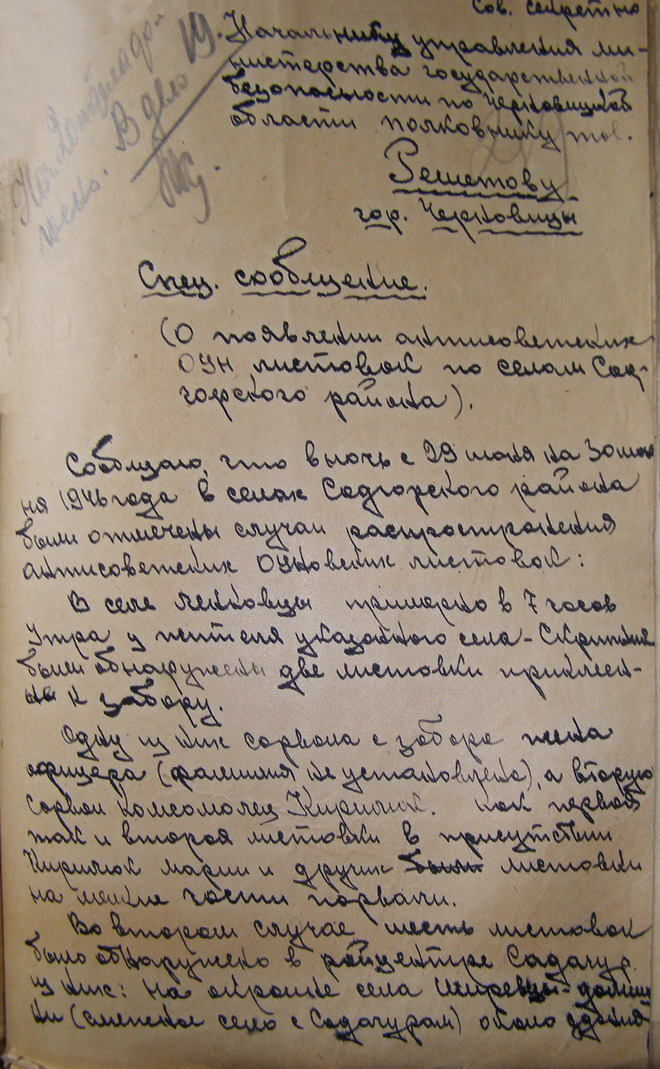 Сов. секретно
Начальнику управления ми-
нистерства государственной
безопасности по Черновицкой
области полковнику тов.
Решетову
гор. Черновицы
В дело 19.
Спец. сообщение.
(О появлении антисоветских
ОУН листовок по селам Сад-
горского района).
Сообщаю, что в ночь с 29 июня на 30 ию-
ня 1946 года в селах Садгорского района
были отмечены случаи распространения
антисоветских ОУНовских листовок:
В селе Ленковцы примерно в 7 часов
утра у жителя указанного села -
были обнаружены две листовки приклеен-
ые к забору.
Одну из них сорвала с забора жена
офицера (фамилия не установлена), а вторую
сорвал комсомолец Киричук. Как первая
так и вторая листовки в присутствии
Киричук Марии и других были листовки
на мелкие части порвали.
Во втором случае шесть листовок
было обнаружено в райцентре Садагура
из них: на окраине села
ки (смежное село с Садагурам) около здания